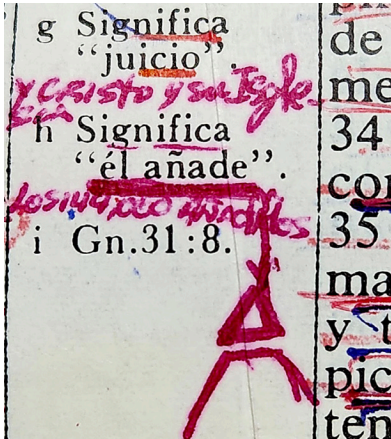 g Significa
“juicio”.
y Cristo y su Igle
sia
h Significa
“él añade”.
los 144,000 añadidos
i Gn.31:8.
de
me
34
con
35
ma
y t
pic
ten